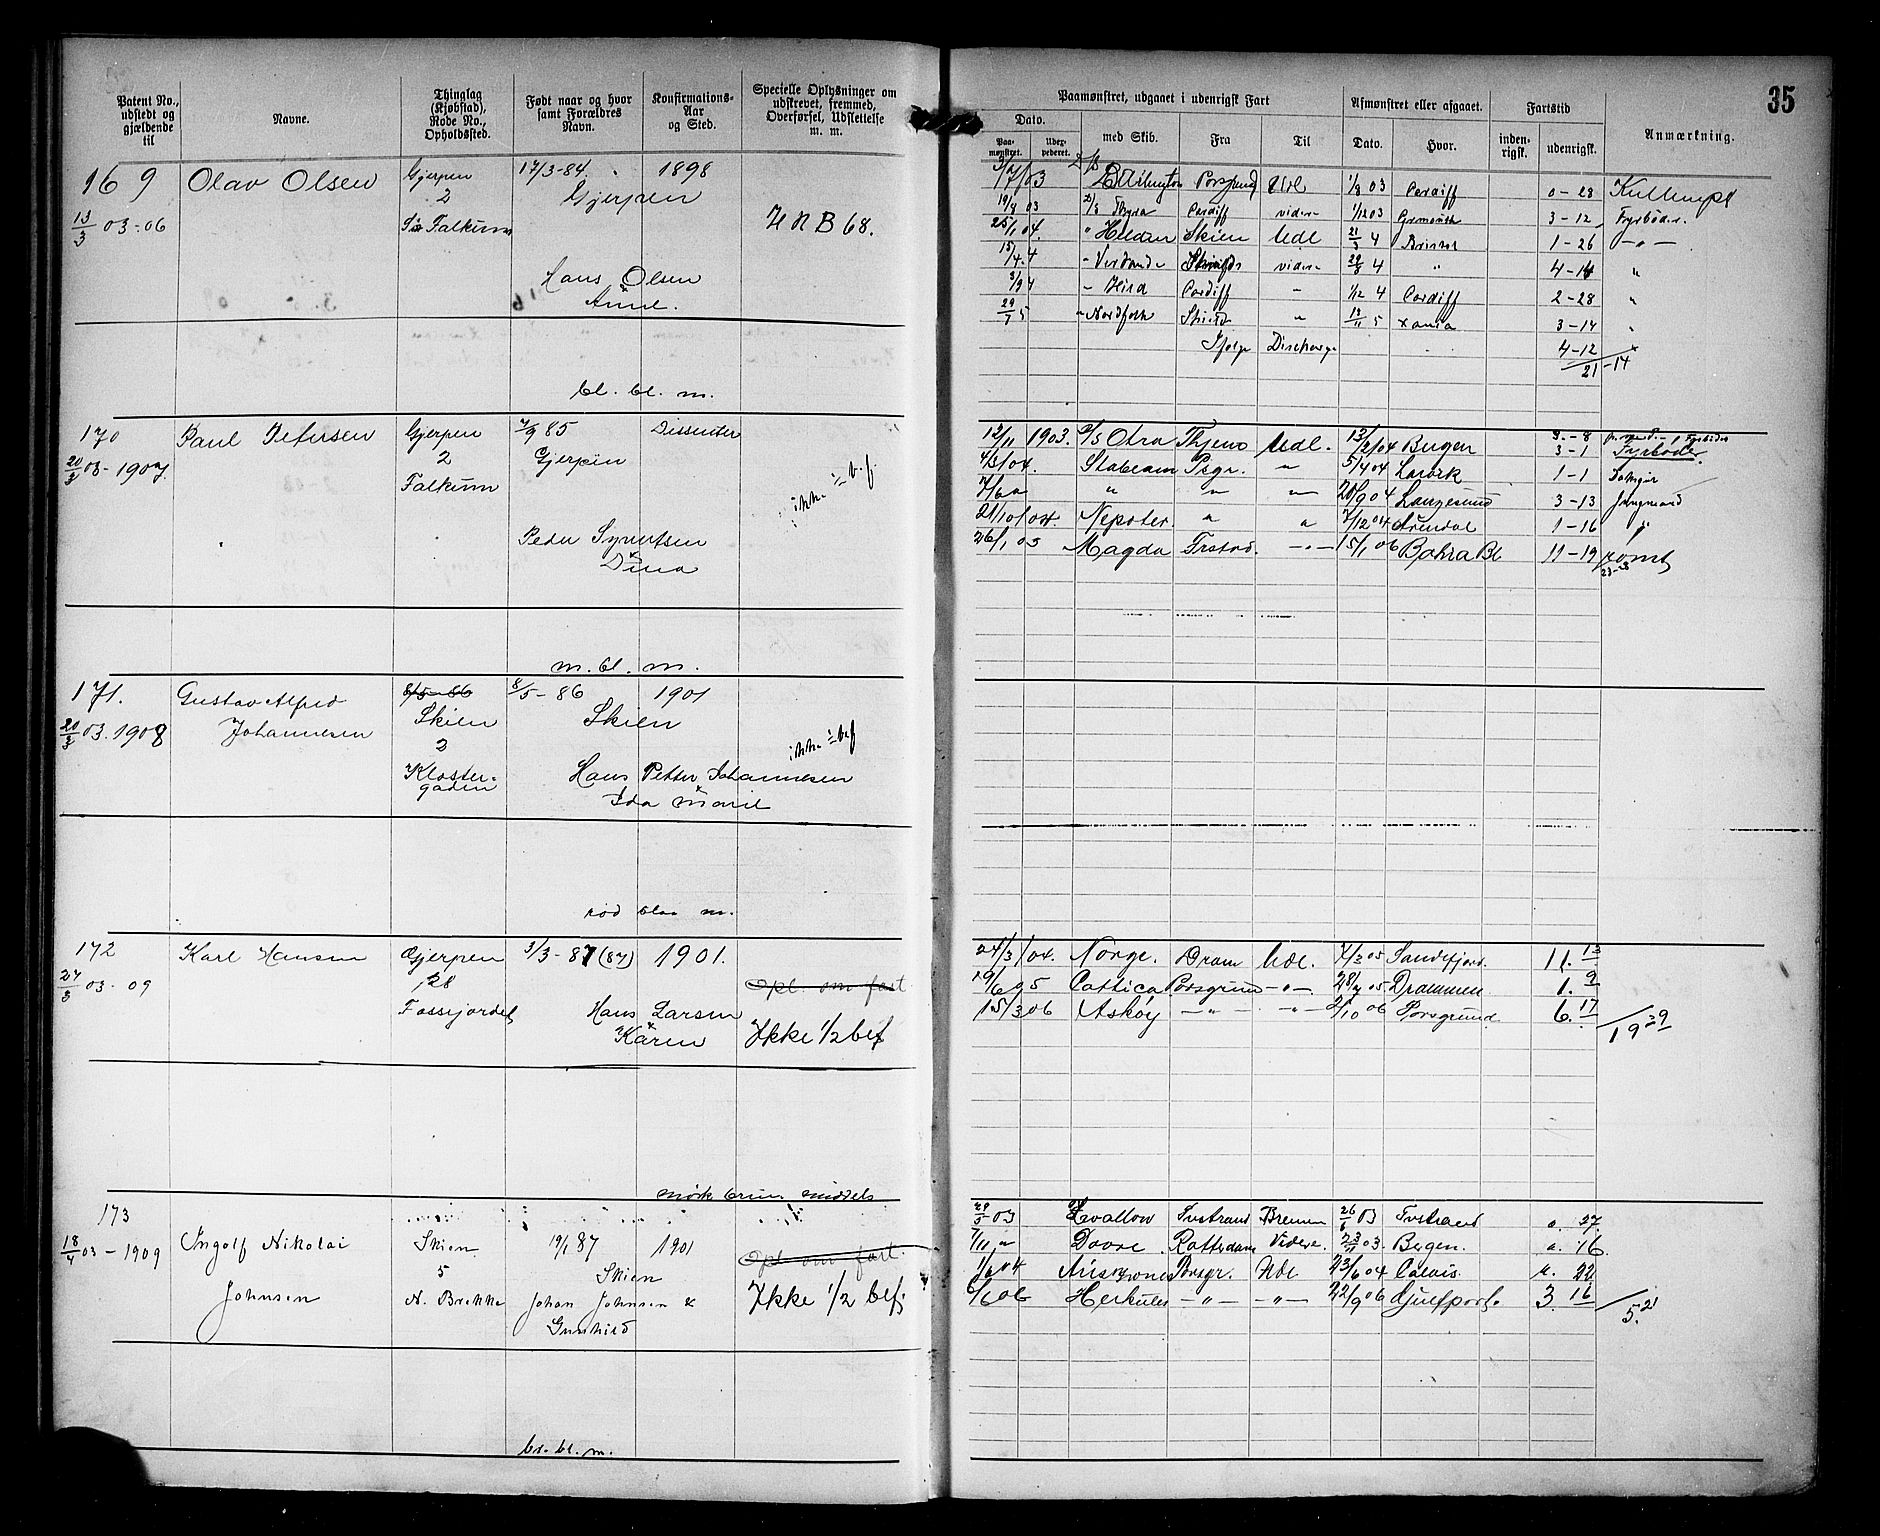 35
Patent No., udstedt og gjældende til
Navne.
Thinglag (Kjøbstad), Rode No., Opholdssted.
Født naar og hvor samt Forældres Navn.
Konfirmations-Aar og Sted.
Specielle Oplysninger om udskrevet, fremmed, Overførsel, Udslettelse m. m.
Paamønstret, udgaaet i udenrigsk Fart
Dato.
Paamønstret.
Udexpederet.
med Skib.
Fra
Til
Afmønstret eller afgaaet.
Dato.
Hvor.
Fartstid
indenrigsk.
udenrigsk.
Anmærkning.
169 Olav Olsen Gjerpen 17/3-84. 1898
2 Gjerpen
13/3 03-06 Falkum H N B 68.
Hans Olsen
&
Anne.
bl. bl. m.
3/7 03 Porsgrund Udl 1/8 03 Cardiff 0-28
19/8 03 Thyra Cardiff videre 1/12 03 3-12 Fyrbøder.
25/1 04. " Skien Udl 21/3 4 Bristol 1-26 -"-
15/4. 4 - Verdande videre 29/8 4 " 4-14 "
3/9 4 - Hird Cardiff - 1/12 4 Cardiff 2-28 "
29/7 5 - Nordfolk " 13/11 5 Xania 3-14 "
Ifølge Discharge 4-12
21-14
170 Paul Petersen Gjerpen 7/9 85 Dissenter
2 Gjerpen
20/3 03-1907. Falkum ikke ½ bef.
Peder Syvertsen
&
Dina
m. bl. m.
12/11 1903. D/S Otra Udl. 13/2/04 Bergen 3.-8
3-1 Fyrbøder
4/3/04. Stabeam Psgr. " 5/4 04 Larvik 1-1
7/6 " " " 20/9 04 Langesund 3-13 Jungmand
21/10/04. Nepoter. " " 7/12 04 Arendal 1-16 "
26/1 05 Magda Frstad. -"- 15/1 06 Bahia Bl 11-19 rømt
23-
171. Gustav Alfred 8/5-86 8/5-86 1901
20/3 03. 1908 Johannesen Skien Skien
2 ikke ½ bef
Klostergaden Hans Petter Johannesen
&
Ida Marie
rød blaa m.
172 Karl Hansen Gjerpen 3/3-87 (87) 1901.
27/3 03-09 128 Opl. om fart
Fossejordet Hans Larsen
&
Karen Ikke 1/2 bef
mørk brun middels
24/3/04. Norge. Dram Udl. 7/3 05 Sandefjord. 11. 13
19/6 05 Cattica Porsgrund -"- Drammen 1. 9
15/3 06 Askøy -"- -"- 2/10 06 Porsgrund 6. 17
19 29
173
18/4 03-1909 Ingolf Nikolai Skien 19/1 87 1901 Opl om fart.
5 Skien
Johnsen N. Brekke Johan Johnsen & Ikke 1/2 bef.
Gunhild
br. bl. m.
29/5 03 Svallow Tvstrand Bremen 26/6 03 Tvstrand 0. 27.
7/11 " Dovre. Rotterdam Videre. 23/11 03. Bergen. 0. 16.
1/6 04 Porsgr. Udl 23/6 04 Calais. ". 22
6/6 06 Herkules -"- -"- 22/9 06 Gulfport. 3. 16
5. 21